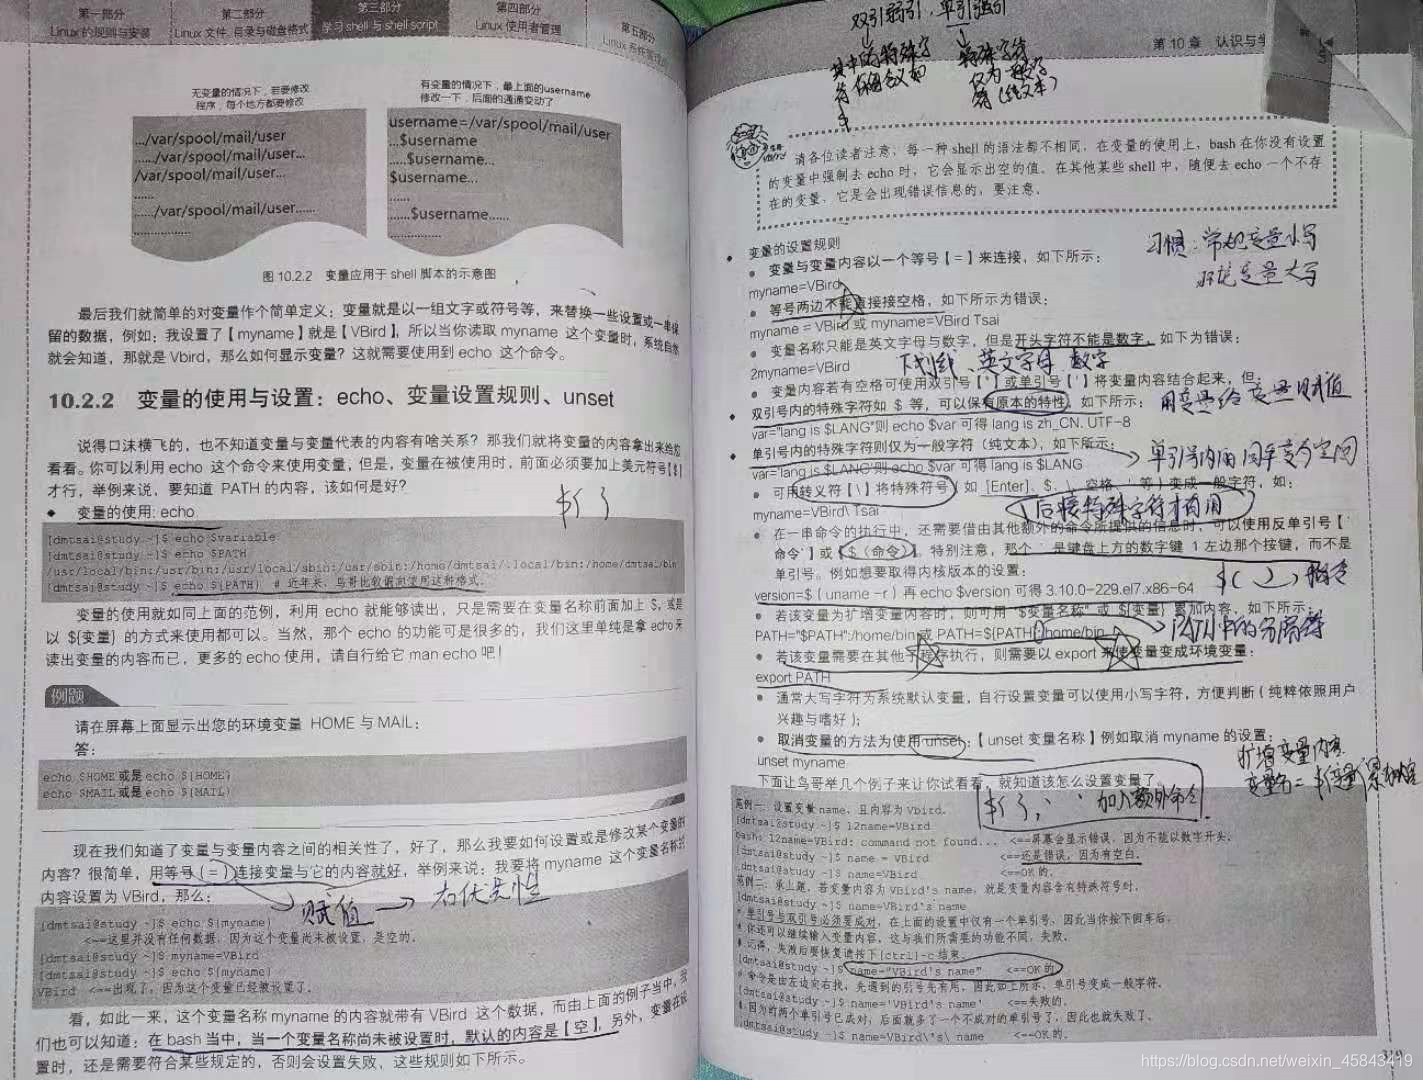 第一部分
Linux 的规则与安装
第二部分
Linux 文件、目录与磁盘格式
第三部分
学习 shell 与 shell script
第四部分
Linux 使用者管理
第五部分
无变量的情况下，若要修改
程序，每个地方都要修改
有变量的情况下，最上面的username
修改一下，后面的通通变动了
.../var/spool/mail/user
...../var/spool/mail/user...
/var/spool/mail/user...
......
...../var/spool/mail/user......
................
username=/var/spool/mail/user
...$username
.....$username...
$username...
......
......$username......
................
图 10.2.2 变量应用于 shell 脚本的示意图
最后我们就简单的对变量作个简单定义：变量就是以一组文字或符号等，来替换一些设置或一串保
留的数据，例如：我设置了【myname】就是【VBird】，所以当你读取 myname 这个变量时，系统自然
就会知道，那就是 Vbird，那么如何显示变量？这就需要使用到 echo 这个命令。
10.2.2 变量的使用与设置：echo、变量设置规则、unset
说得口沫横飞的，也不知道变量与变量代表的内容有啥关系？那我们就将变量的内容拿出来给您
看看。你可以利用 echo 这个命令来使用变量，但是，变量在被使用时，前面必须要加上美元符号【$】
才行，举例来说，要知道 PATH 的内容，该如何是好？
◆ 变量的使用: echo
${ }
[dmtsai@study ~]$ echo $variable
[dmtsai@study ~]$ echo $PATH
/usr/local/bin:/usr/bin:/usr/local/sbin:/usr/sbin:/home/dmtsai/.local/bin:/home/dmtsai/bin
[dmtsai@study ~]$ echo ${PATH} # 近年来，鸟哥比较偏向使用这种格式。
变量的使用就如同上面的范例，利用 echo 就能够读出，只是需要在变量名称前面加上 $，或是
以 ${变量} 的方式来使用都可以。当然，那个 echo 的功能可是很多的，我们这里单纯是拿 echo 来
读出变量的内容而已，更多的 echo 使用，请自行给它 man echo 吧！
例题
请在屏幕上面显示出您的环境变量 HOME 与 MAIL：
答：
echo $HOME 或是 echo ${HOME}
echo $MAIL 或是 echo ${MAIL}
现在我们知道了变量与变量内容之间的相关性了，好了，那么我要如何设置或是修改某个变量的
内容？很简单，用等号（=）连接变量与它的内容就好，举例来说：我要将 myname 这个变量名称的
内容设置为 VBird，那么：
赋值 → 右优先性
[dmtsai@study ~]$ echo ${myname}
<==这里并没有任何数据，因为这个变量尚未被设置，是空的。
[dmtsai@study ~]$ myname=VBird
[dmtsai@study ~]$ echo ${myname}
VBird <==出现了，因为这个变量已经被设置了。
看，如此一来，这个变量名称 myname 的内容就带有 VBird 这个数据，而由上面的例子当中，我
们也可以知道：在 bash 当中，当一个变量名称尚未被设置时，默认的内容是【空】，另外，变量在设
置时，还是需要符合某些规定的，否则会设置失败，这些规则如下所示。
双引弱引，单引强引
其中的特殊字
符保留含义如
$
特殊字符
仅为一般字
符（纯文本）
第 10 章 认识与学
请各位读者注意，每一种 shell 的语法都不相同，在变量的使用上，bash 在你没有设置
的变量中强制去 echo 时，它会显示出空的值。在其他某些 shell 中，随便去 echo 一个不存
在的变量，它是会出现错误信息的，要注意。
◆ 变量的设置规则
习惯：常规变量小写
环境变量大写
● 变量与变量内容以一个等号【=】来连接，如下所示：
myname=VBird
● 等号两边不能直接接空格，如下所示为错误：
myname = VBird 或 myname=VBird Tsai
● 变量名称只能是英文字母与数字，但是开头字符不能是数字，如下为错误：
2myname=VBird
下划线、英文字母、数字
● 变量内容若有空格可使用双引号【"】或单引号【'】将变量内容结合起来，但：
◆ 双引号内的特殊字符如 $ 等，可以保有原本的特性，如下所示：
用变量给变量赋值
var="lang is $LANG"则 echo $var 可得 lang is zh_CN. UTF-8
◆ 单引号内的特殊字符则仅为一般字符（纯文本），如下所示：
var='lang is $LANG'则 echo $var 可得 lang is $LANG
● 可用转义符【\】将特殊符号（如 [Enter]、$、\、空格、' 等）变成一般字符，如：
myname=VBird\ Tsai
后接特殊字符才有用
● 在一串命令的执行中，还需要借由其他额外的命令所提供的信息时，可以使用反单引号【`
命令`】或【$（命令）】。特别注意，那个 ` 是键盘上方的数字键 1 左边那个按键，而不是
单引号。例如想要取得内核版本的设置：
$( )
version=$（uname -r）再 echo $version 可得 3.10.0-229.el7.x86-64
● 若该变量为扩增变量内容时，则可用 "$变量名称" 或 ${变量} 累加内容，如下所示：
PATH="$PATH":/home/bin 或 PATH=${PATH}:/home/bin
PATH中的分隔符
● 若该变量需要在其他子程序执行，则需要以 export 来使变量变成环境变量：
export PATH
● 通常大写字符为系统默认变量，自行设置变量可以使用小写字符，方便判断（纯粹依照用户
兴趣与嗜好）；
● 取消变量的方法为使用 unset：【unset 变量名称】例如取消 myname 的设置：
unset myname
扩增变量内容
下面让鸟哥举几个例子来让你试看看，就知道该怎么设置变量了。
加入额外命令
范例一：设置变量 name，且内容为 Vbird。
[dmtsai@study ~]$ 12name=VBird
bash: 12name=VBird: command not found... <==屏幕会显示错误，因为不能以数字开头。
[dmtsai@study ~]$ name = VBird <==还是错误，因为有空白。
[dmtsai@study ~]$ name=VBird <==OK的。
范例二：承上题，若变量内容为 VBird's name，就是变量内容含有特殊符号时。
[dmtsai@study ~]$ name=VBird's name
# 单引号与双引号必须要成对，在上面的设置中仅有一个单引号，因此当你按下回车后，
# 你还可以继续输入变量内容，这与我们所需要的功能不同，失败。
# 记得，失败后要恢复请按下[ctrl]-c 结束。
[dmtsai@study ~]$ name="VBird's name" <==OK 的
# 命令是由左边向右找，先遇到的引号先有用，因此如上所示，单引号变成一般字符。
[dmtsai@study ~]$ name='VBird's name' <==失败的。
# 因为前两个单引号已成对，后面就多了一个不成对的单引号了，因此也就失败了。
[dmtsai@study ~]$ name=VBird\'s\ name <==OK的。
319
https://blog.csdn.net/weixin_45843419